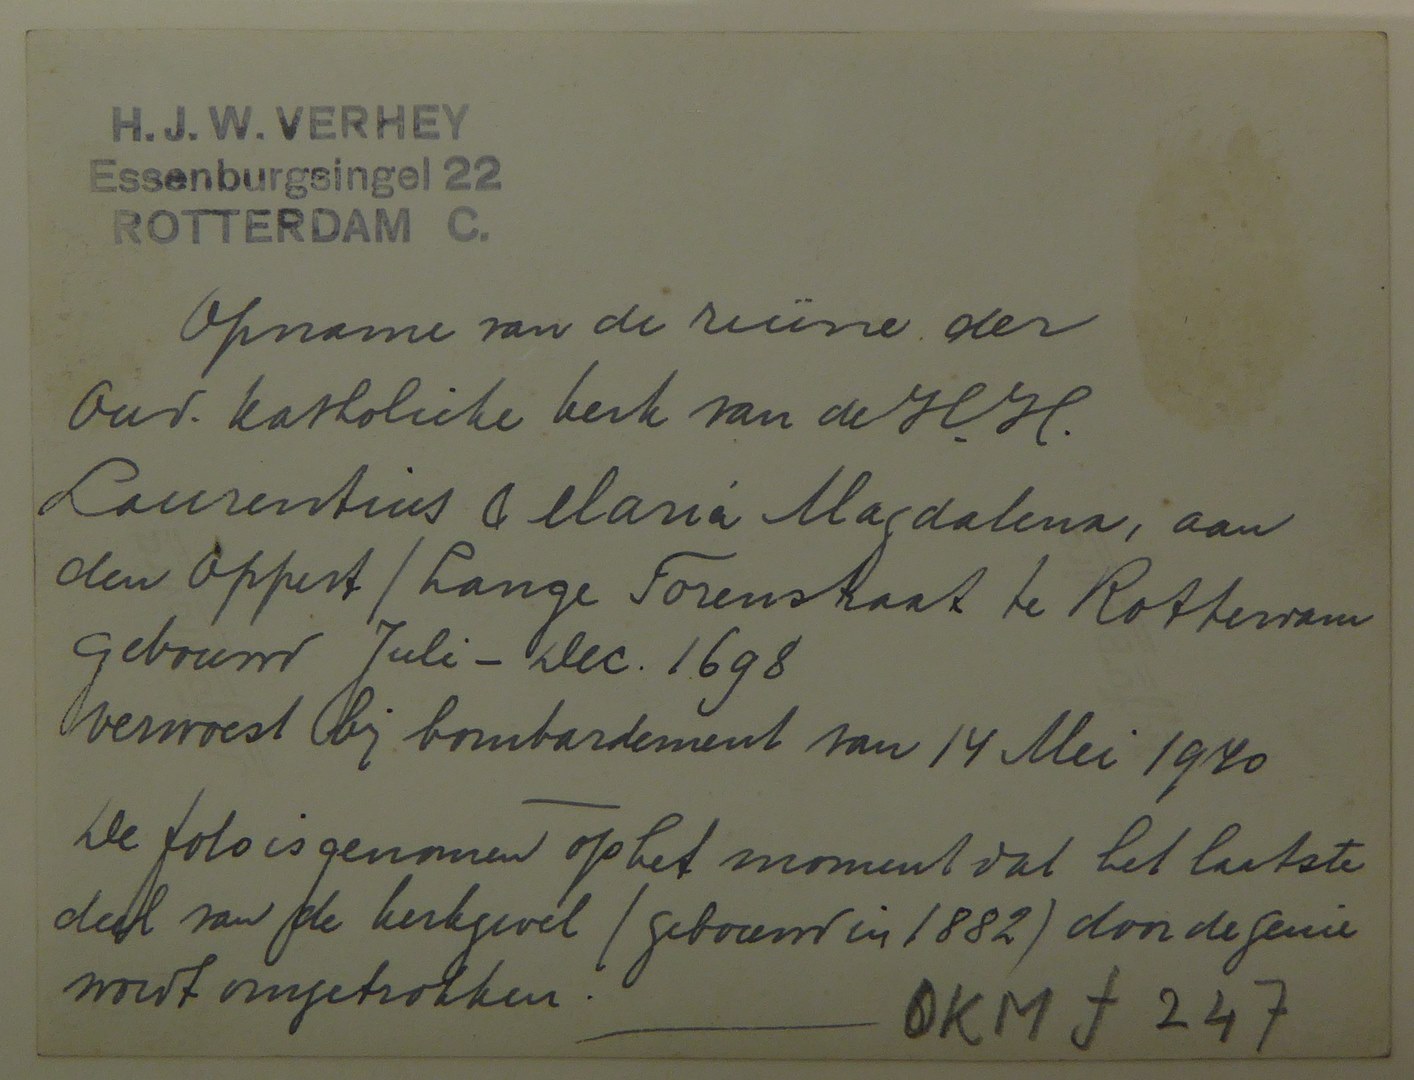 H. J. W. VERHEY
Essenburgsingel 22
ROTTERDAM C.
Opname van de reüine der
Oud. Katholieke kerk van de H.H.
Laurentius & Maria Magdalena, aan
den Oppert / Lange Torenstraat te Rotterdam
gebouwd Juli - Dec. 1698
verwoest bij bombardement van 14 Mei 1940
De foto is genomen op het moment dat het laatste
deel van de kerkgevel (gebouwd in 1882) door de genie
wordt omgetrokken.
OKM f 247